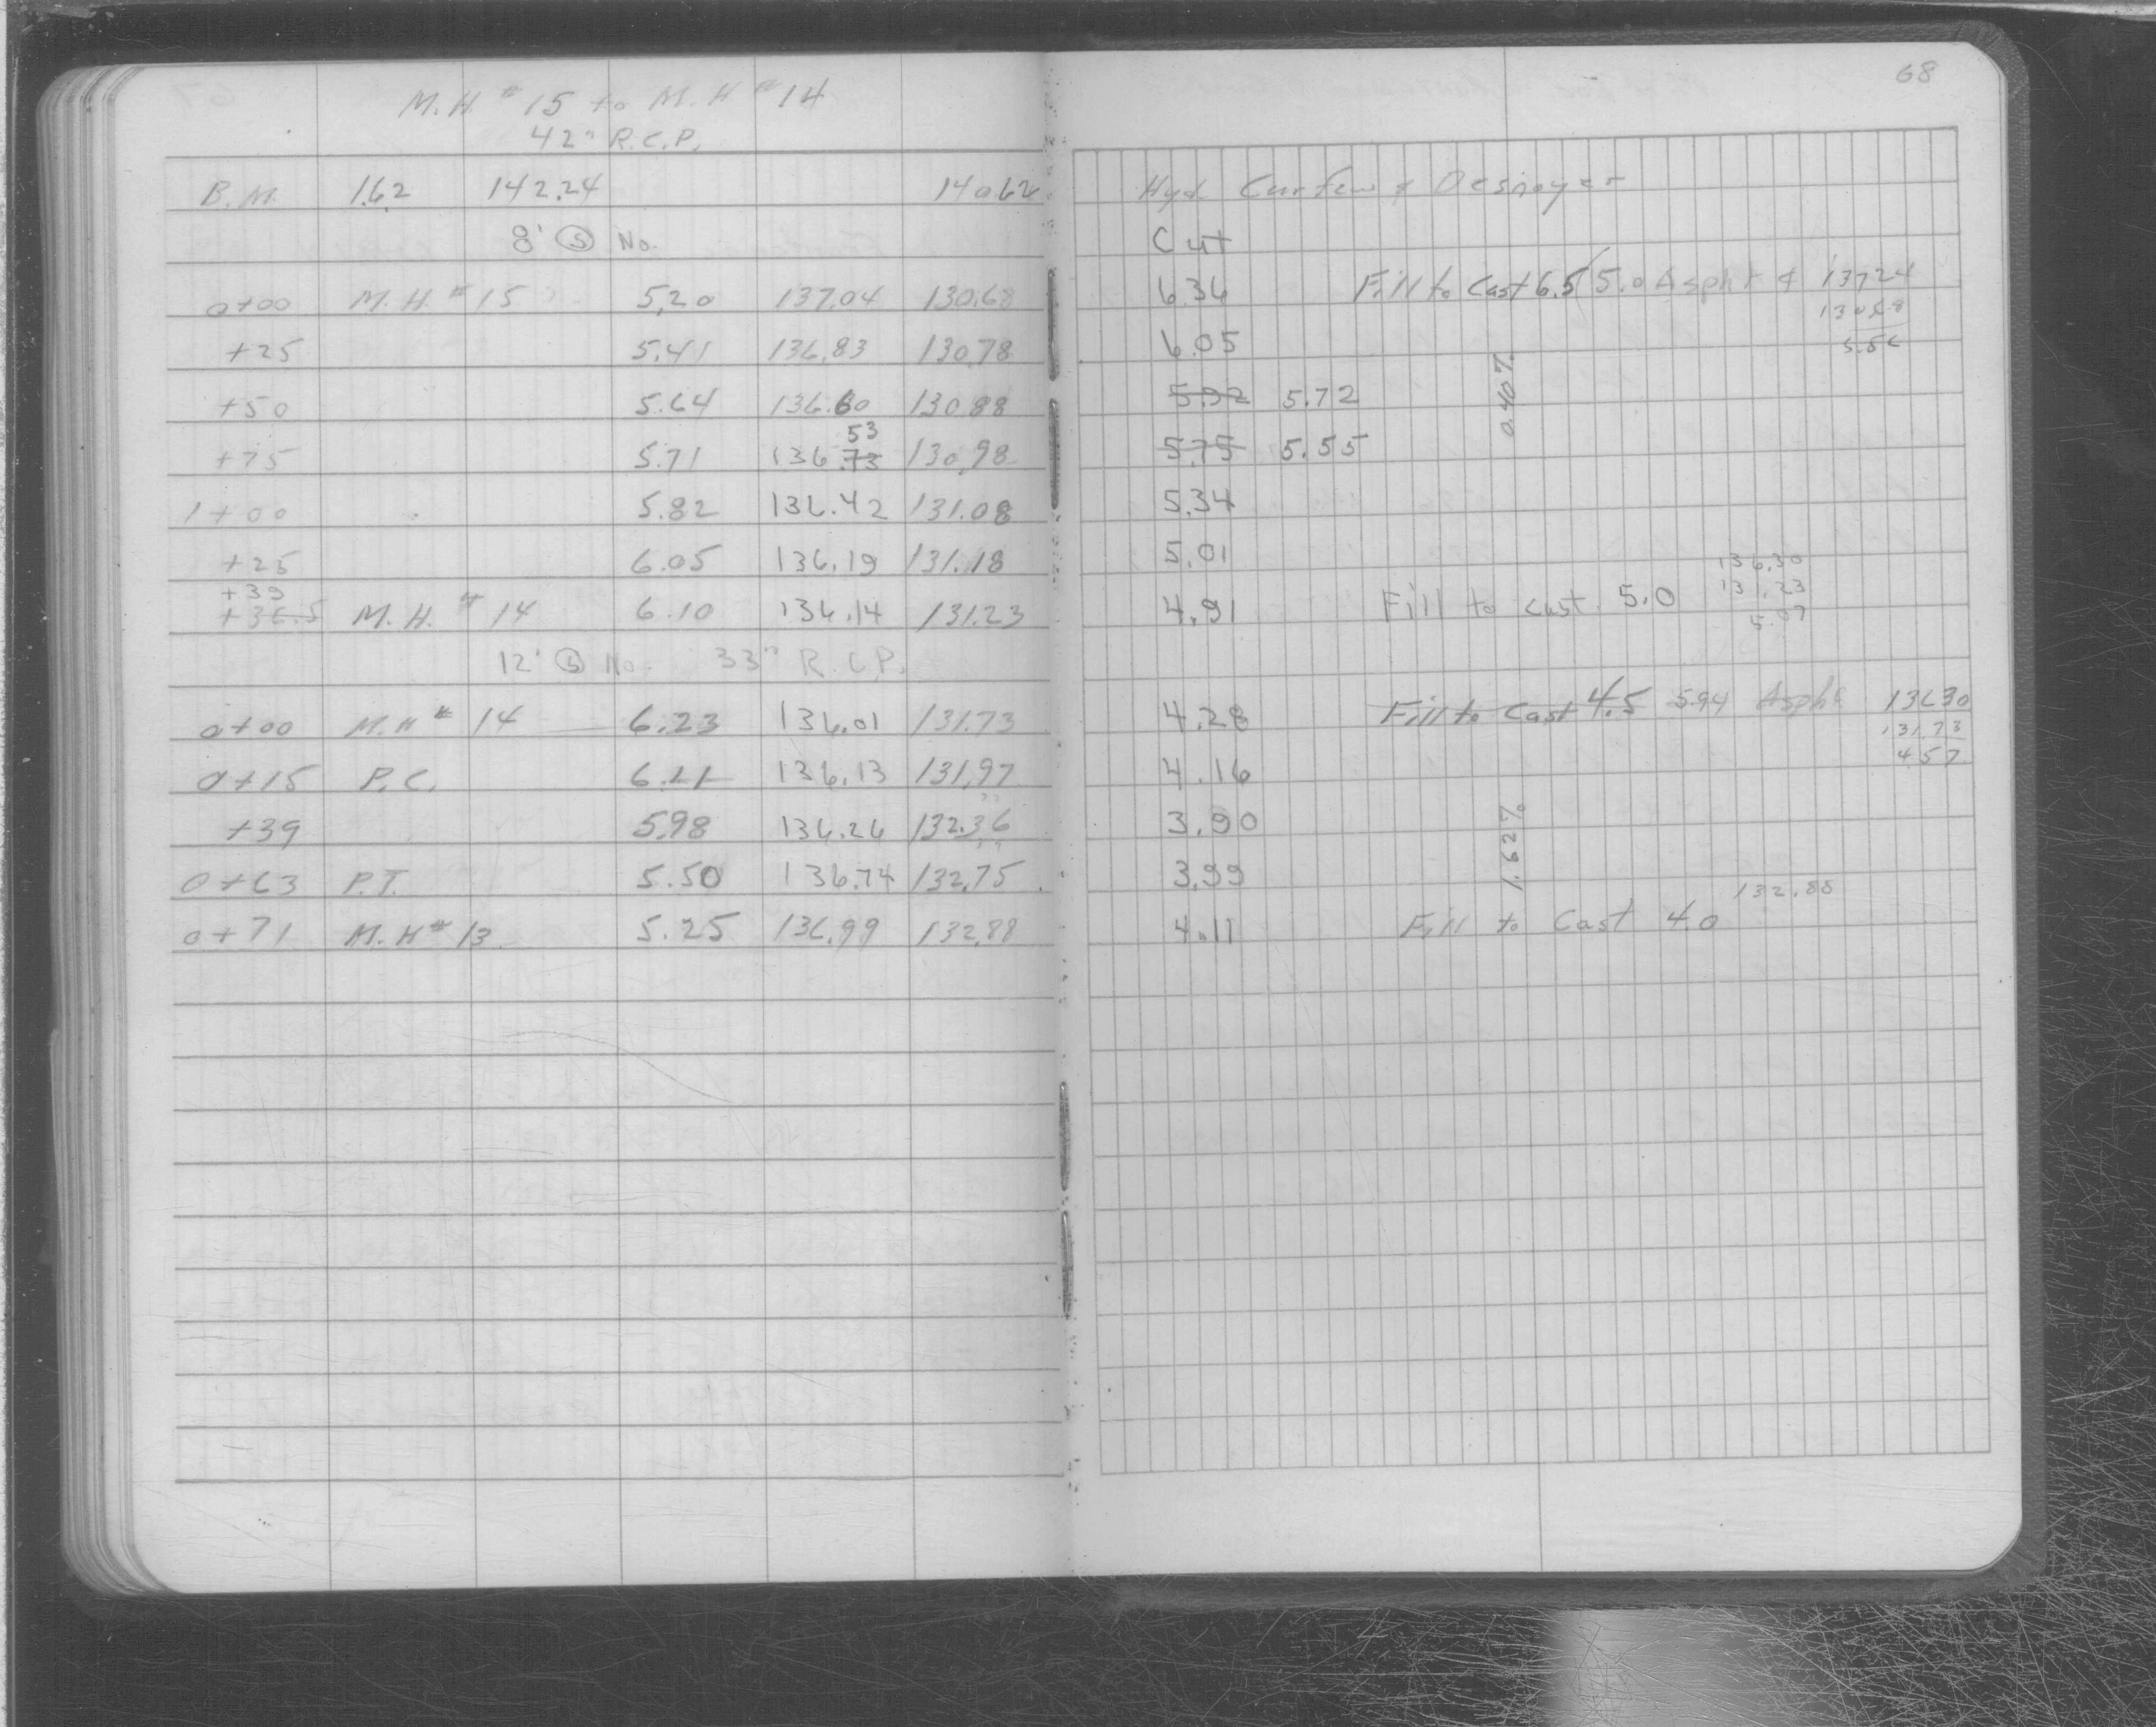 68
M.H #15 to M.H #14
42" R.C.P.
B.M. 1.62 142.24 140.62 Hyd Curfew & Desnoyer
8' Ⓢ No. Cut
0+00 M.H. #15 5.20 137.04 130.68 6.36 Fill to Cast 6.5 5.0 Asph 137.24
130.68
+25 5.41 136.83 130.78 6.05 5.56
+50 5.64 136.60 130.88 5.92 5.72 0.40%
53
+75 5.71 136.73 130.98 5.75 5.55
1+00 5.82 136.42 131.08 5.34
+25 6.05 136.19 131.18 5.01 136.30
+39 131.23
+36.5 M.H. #14 6.10 136.14 131.23 4.91 Fill to cast 5.0 5.07
12' Ⓢ No. 33" R.C.P.
0+00 M.H # 14 6.23 136.01 131.73 4.28 Fill to Cast 4.5 5.94 Asph 136.30
131.73
0+15 P.C. 6.11 136.13 131.97 4.16 4.57
+39 5.98 136.26 132.36 3.90 1.62%
0+63 P.T. 5.50 136.74 132.75 3.99 132.88
0+71 M.H #13 5.25 136.99 132.88 4.11 Fill to Cast 4.0